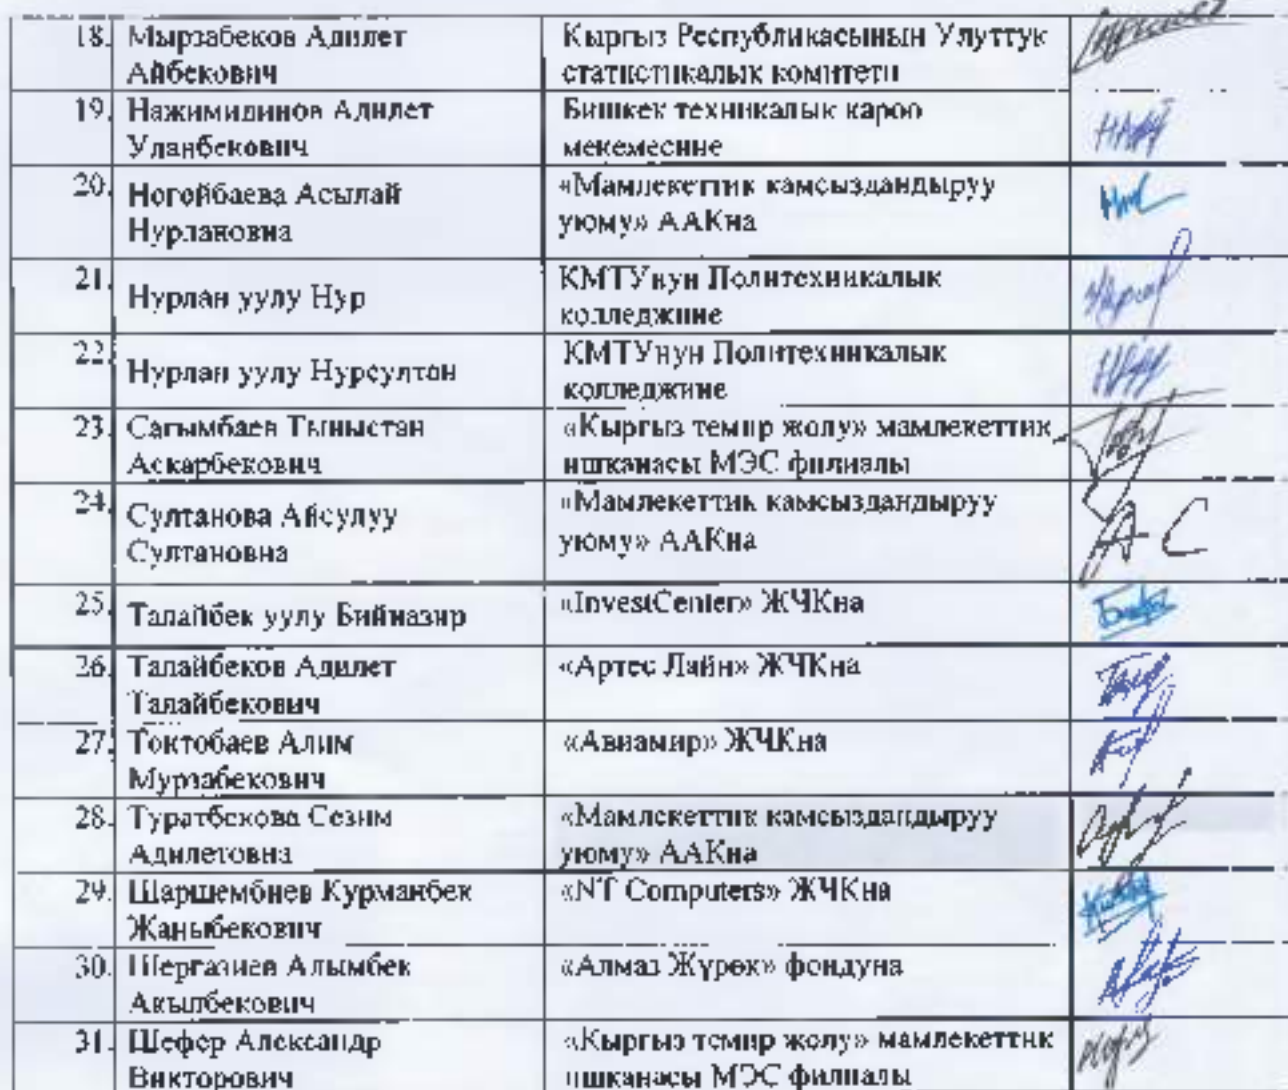 18. Мырзабеков Адилет
Айбекович
Кыргыз Республикасынын Улуттук
статистикалык комитети
19. Нажимидинов Адилет
Уланбекович
Бишкек техникалык кароо
мекемесине
20. Ногойбаева Асылай
Нурлановна
«Мамлекеттик камсыздандыруу
уюму» ААКна
21. Нурлан уулу Нур
КМТУнун Политехникалык
колледжине
22. Нурлан уулу Нурсултан
КМТУнун Политехникалык
колледжине
23. Сагымбаев Тыныстан
Аскарбекович
«Кыргыз темир жолу» мамлекеттик
ишканасы МЭС филиалы
24. Султанова Айсулуу
Султановна
«Мамлекеттик камсыздандыруу
уюму» ААКна
АС
25. Талайбек уулу Бийназир
«InvestCenter» ЖЧКна
26. Талайбеков Адилет
Талайбекович
«Артес Лайн» ЖЧКна
27. Токтобаев Алим
Мурзабекович
«Авиамир» ЖЧКна
28. Туратбекова Сезим
Адилетовна
«Мамлекеттик камсыздандыруу
уюму» ААКна
29. Шаршембиев Курманбек
Жаныбекович
«NT Computers» ЖЧКна
30. Шергазиев Алымбек
Акылбекович
«Алмаз Жүрөк» фондуна
31. Шефер Александр
Викторович
«Кыргыз темир жолу» мамлекеттик
ишканасы МЭС филиалы